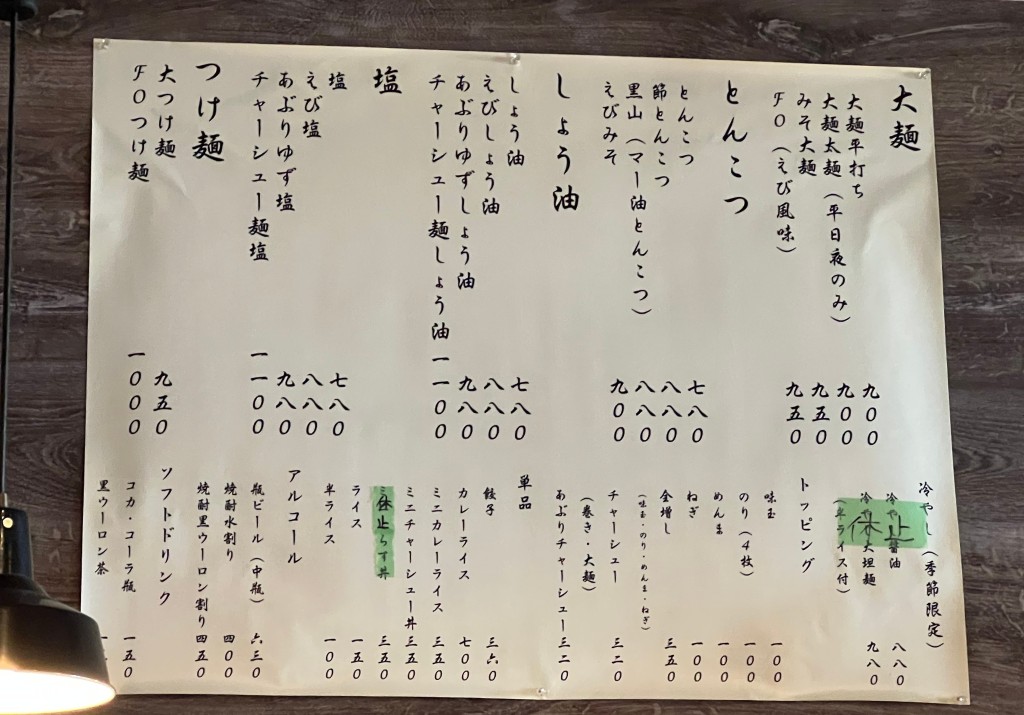 大麺
大麺平打ち 九〇〇
大麺太麺（平日夜のみ） 九〇〇
みそ大麺 九五〇
FO（えび風味） 九五〇
とんこつ
とんこつ 七八〇
節とんこつ 八八〇
黒山（マー油とんこつ） 八八〇
えびみそ 九〇〇
しょう油
しょう油 七八〇
えびしょう油 八八〇
あぶりゆずしょう油 九八〇
チャーシュー麺しょう油 一一〇〇
塩
塩 七八〇
えび塩 八八〇
あぶりゆず塩 九八〇
チャーシュー麺塩 一一〇〇
つけ麺
大つけ麺 九五〇
FOつけ麺 一〇〇〇
冷やし（季節限定）
冷や 油 八八〇
冷や 大坦麺 九八〇
（半ライス付）
休止
トッピング
味玉 一〇〇
のり（4枚） 一〇〇
めんま 一〇〇
ねぎ 一〇〇
全増し 三五〇
（味玉・のり・めんま・ねぎ）
チャーシュー 三二〇
（巻き・大麺）
あぶりチャーシュー 三二〇
単品
餃子 三六〇
カレーライス 七〇〇
ミニカレーライス 三五〇
ミニチャーシュー丼 三五〇
休止らす丼 三五〇
ライス 一五〇
半ライス 一〇〇
アルコール
瓶ビール（中瓶） 六三〇
焼酎水割り 四〇〇
焼酎黒ウーロン割り 四五〇
ソフトドリンク
コカ・コーラ瓶 一五〇
黒ウーロン茶